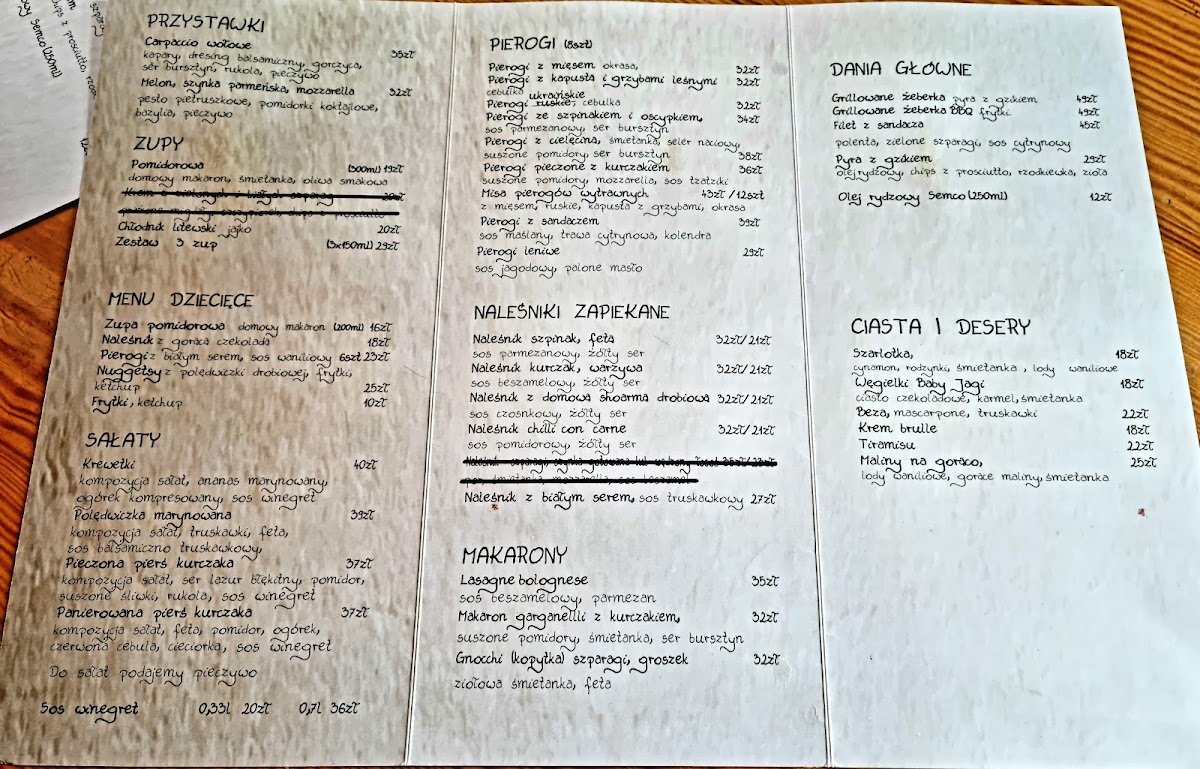 PRZYSTAWKI
Carpaccio wołowe
kapary, dresing balsamiczny, gorczyca, 35zł
ser bursztyn, rukola, pieczywo
Melon, szynka parmeńska, mozzarella 32zł
pesto pietruszkowe, pomidorki koktajlowe,
bazylia, pieczywo
ZUPY
Pomidorowa (300ml) 19zł
domowy makaron, śmietanka, oliwa smakowa
Chłodnik litewski jajko 20zł
Zestaw 3 zup (3x150ml) 29zł
MENU DZIECIĘCE
Zupa pomidorowa domowy makaron (200ml) 16zł
Naleśnik z gorącą czekoladą 18zł
Pierogi z białym serem, sos waniliowy 6szt 23zł
Nuggetsy z polędwiczki drobiowej, frytki,
ketchup 25zł
Frytki, ketchup 10zł
SAŁATY
Krewetki 40zł
kompozycja sałat, ananas marynowany,
ogórek kompresowany, sos winegret
Polędwiczka marynowana 39zł
kompozycja sałat, truskawki, feta,
sos balsamiczno truskawkowy,
Pieczona pierś kurczaka 37zł
kompozycja sałat, ser lazur błękitny, pomidor,
suszone śliwki, rukola, sos winegret
Panierowana pierś kurczaka 37zł
kompozycja sałat, feta, pomidor, ogórek,
czerwona cebula, cieciorka, sos winegret
Do sałat podajemy pieczywo
Sos winegret 0,33l 20zł 0,7l 36zł
PIEROGI (8szt)
Pierogi z mięsem okrasa, 32zł
Pierogi z kapustą i grzybami leśnymi 32zł
cebulka ukraińskie
Pierogi ruskie, cebulka 32zł
Pierogi ze szpinakiem i oscypkiem, 34zł
sos parmezanowy, ser bursztyn
Pierogi z cielęciną, śmietanka, seler naciowy,
suszone pomidory, ser bursztyn 38zł
Pierogi pieczone z kurczakiem 36zł
suszone pomidory, mozzarella, sos tzatziki
Misa pierogów wytrawnych 43zł /12szt
z mięsem, ruskie, kapusta z grzybami, okrasa
Pierogi z sandaczem 39zł
sos maślany, trawa cytrynowa, kolendra
Pierogi leniwe 29zł
sos jagodowy, palone masło
NALEŚNIKI ZAPIEKANE
Naleśnik szpinak, feta 32zł/21zł
sos parmezanowy, żółty ser
Naleśnik kurczak, warzywa 32zł/21zł
sos beszamelowy, żółty ser
Naleśnik z domową shoarmą drobiową 32zł/21zł
sos czosnkowy, żółty ser
Naleśnik chilli con carne 32zł/21zł
sos pomidorowy, żółty ser
Naleśnik z białym serem, sos truskawkowy 27zł
MAKARONY
Lasagne bolognese 35zł
sos beszamelowy, parmezan
Makaron garganellli z kurczakiem, 32zł
suszone pomidory, śmietanka, ser bursztyn
Gnocchi (kopytka) szparagi, groszek 32zł
ziołowa śmietanka, feta
DANIA GŁÓWNE
Grillowane żeberka pyra z gzikiem 49zł
Grillowane żeberka BBQ frytki 49zł
Filet z sandacza 45zł
polenta, zielone szparagi, sos cytrynowy
Pyra z gzikiem 29zł
olej rydzowy, chips z prosciutto, rzodkiewka, zioła
Olej rydzowy Semco (250ml) 12zł
CIASTA I DESERY
Szarlotka, 18zł
cynamon, rodzynki, śmietanka, lody waniliowe
Węgielki Baby Jagi 18zł
ciasto czekoladowe, karmel, śmietanka
Beza, mascarpone, truskawki 22zł
Krem brulle 18zł
Tiramisu 22zł
Maliny na gorąco, 25zł
lody waniliowe, gorące maliny, śmietanka